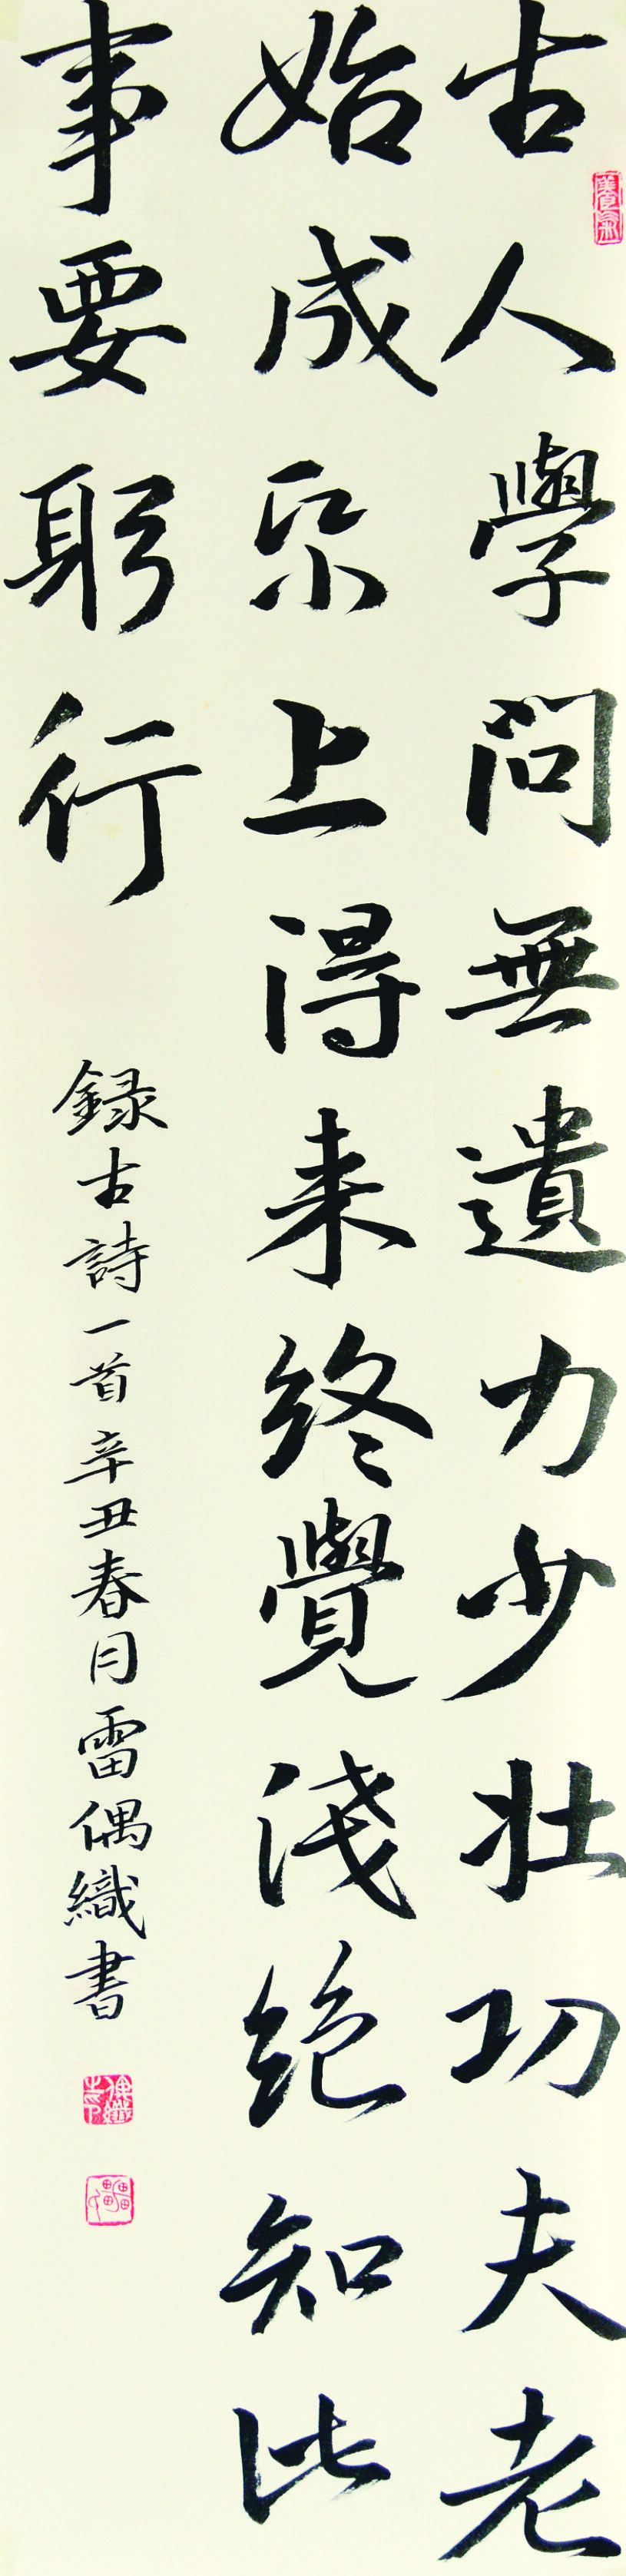 古人學問無遺力少壯功夫老
始成帋上得来終覺淺絶知此
事要躬行
録古詩一首辛丑春月雷偶織書